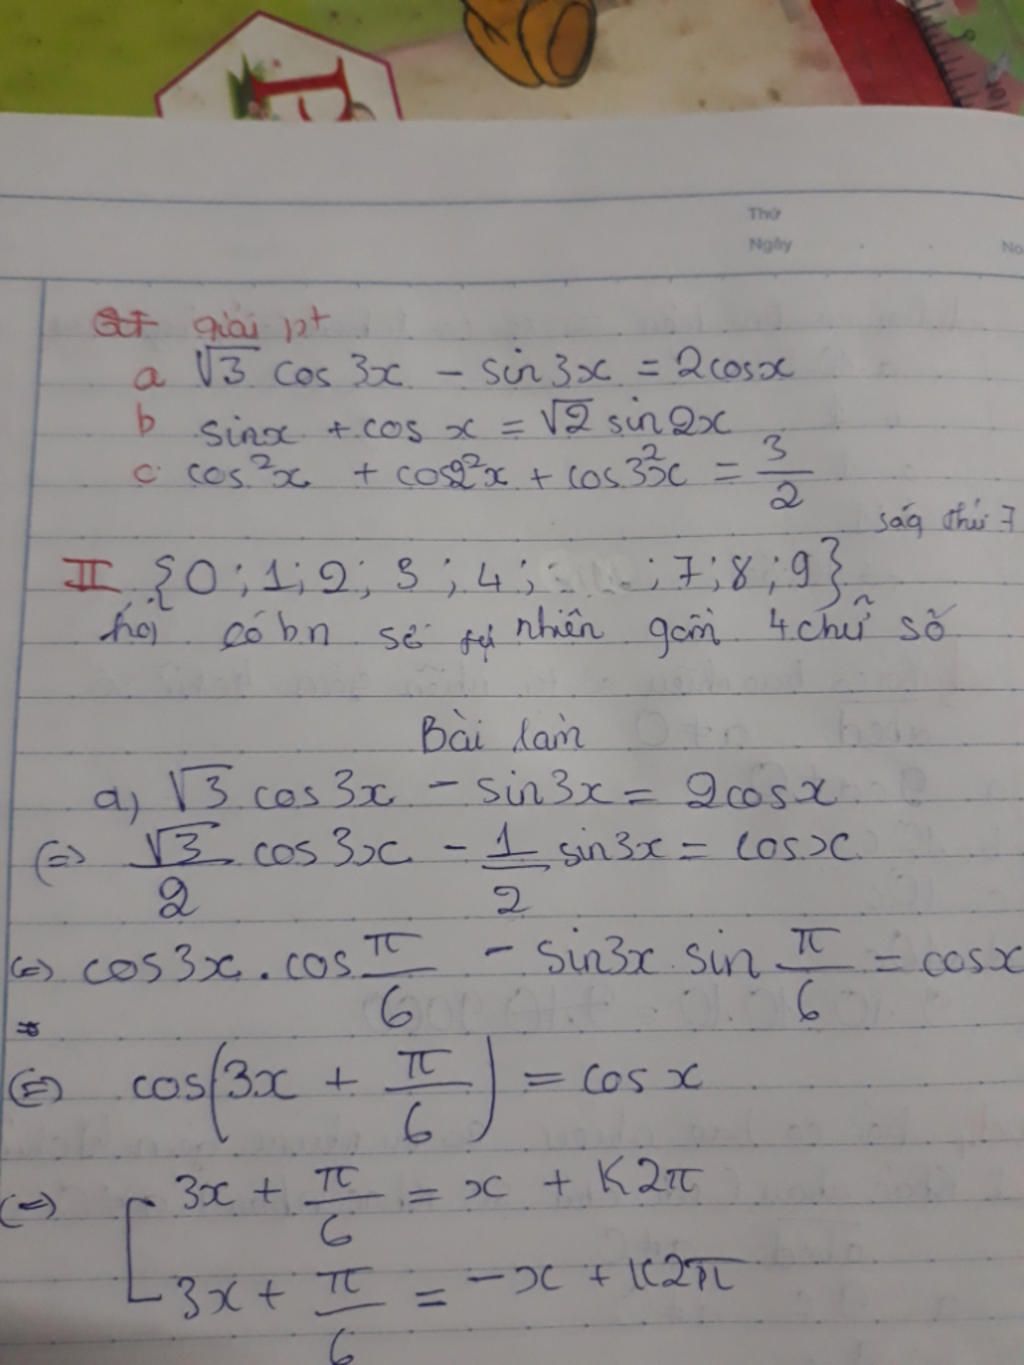 Thứ
Ngày No
giải pt
a √3 cos 3x - sin 3x = 2cosx
b sinx + cos x = √2 sin 2x
c cos²x + cos2²x + cos3²x = 3/2
sáng thứ 7
II {0; 1; 2; 3; 4; ....; 7; 8; 9}
hỏi có bn số tự nhiên gồm 4 chữ số
Bài làm
a, √3 cos3x - sin3x = 2cosx
(=) √3/2 cos3x - 1/2 sin3x = cosx
(=) cos3x . cos π/6 - sin3x sin π/6 = cosx
(=) cos(3x + π/6) = cos x
(=) [ 3x + π/6 = x + K2π
3x + π/6 = -x + K2π